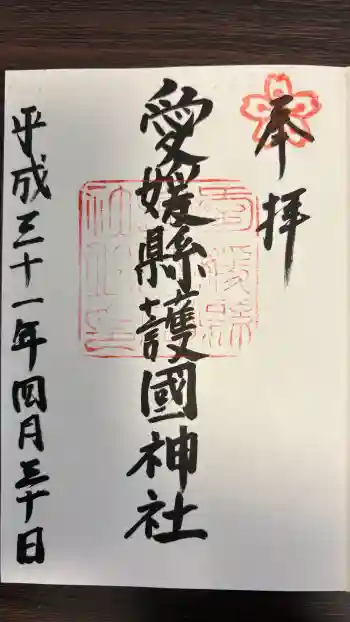 奉拝
愛媛縣護國神社
平成三十一年四月三十日